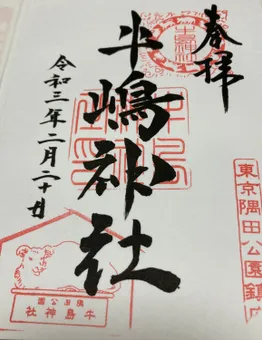 奉拝
牛嶋神社
令和三年二月二十日
東京隅田公園鎮
園公田隅
社神島牛